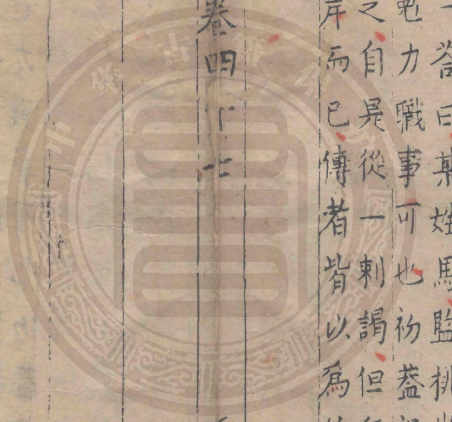 荅曰某姓馬監排
勉力職事可也初葢
之自是從一刺謁但
岸而已傳者皆以為
卷四十七